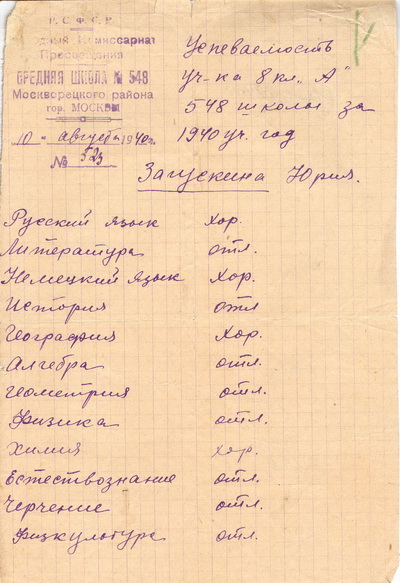 Р. С. Ф. С. Р.
Народный Комиссариат
Просвещения
СРЕДНЯЯ ШКОЛА № 548
Москворецкого района
гор. МОСКВЫ
10 - августа 1940г.
№ 523
Успеваемость
уч-ка 8 кл. "А"
548 школы за
1940 уч. год
Загускина Юрия.
Русский язык хор.
Литература отл.
Немецкий язык хор.
История отл
География хор.
Алгебра отл.
Геометрия отл.
Физика отл.
Химия хор.
Естествознание отл.
Черчение отл.
Физкультура отл.